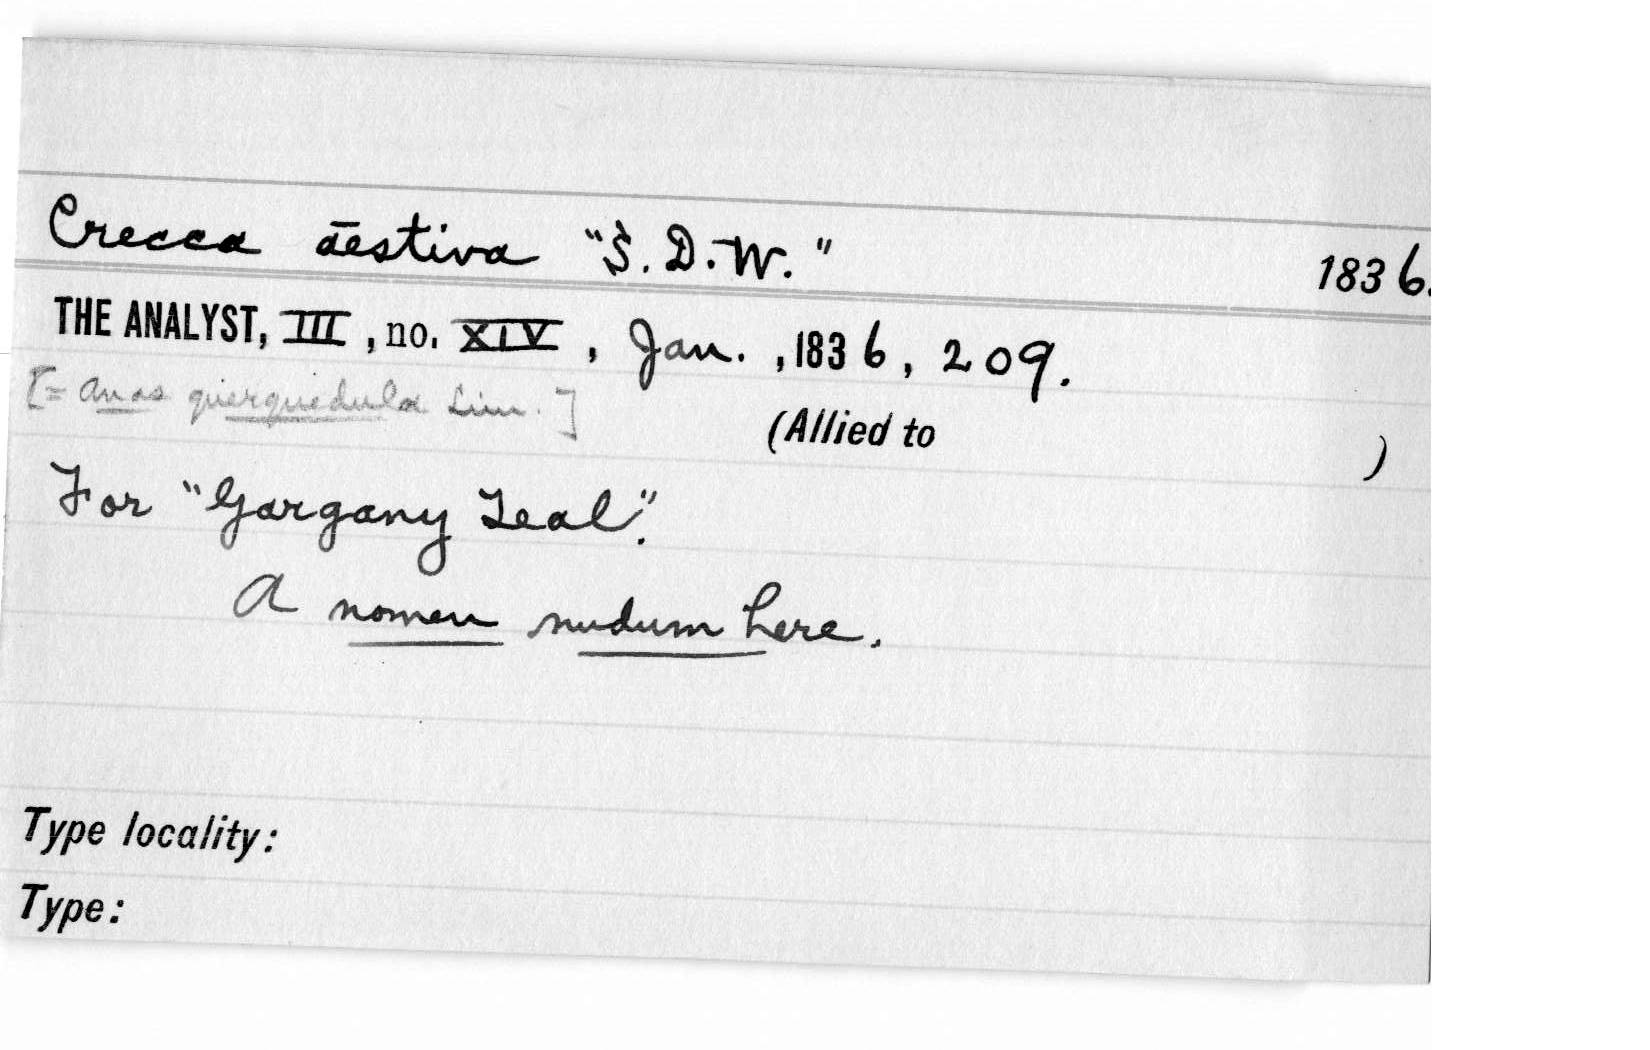 Crecca aestiva "S. D. W." 1836.
THE ANALYST, III, no. XIV, Jan., 1836, 209.
[= Anas querquedula Linn.]
(Allied to )
For "Gargany Teal".
A nomen nudum here.
Type locality:
Type: